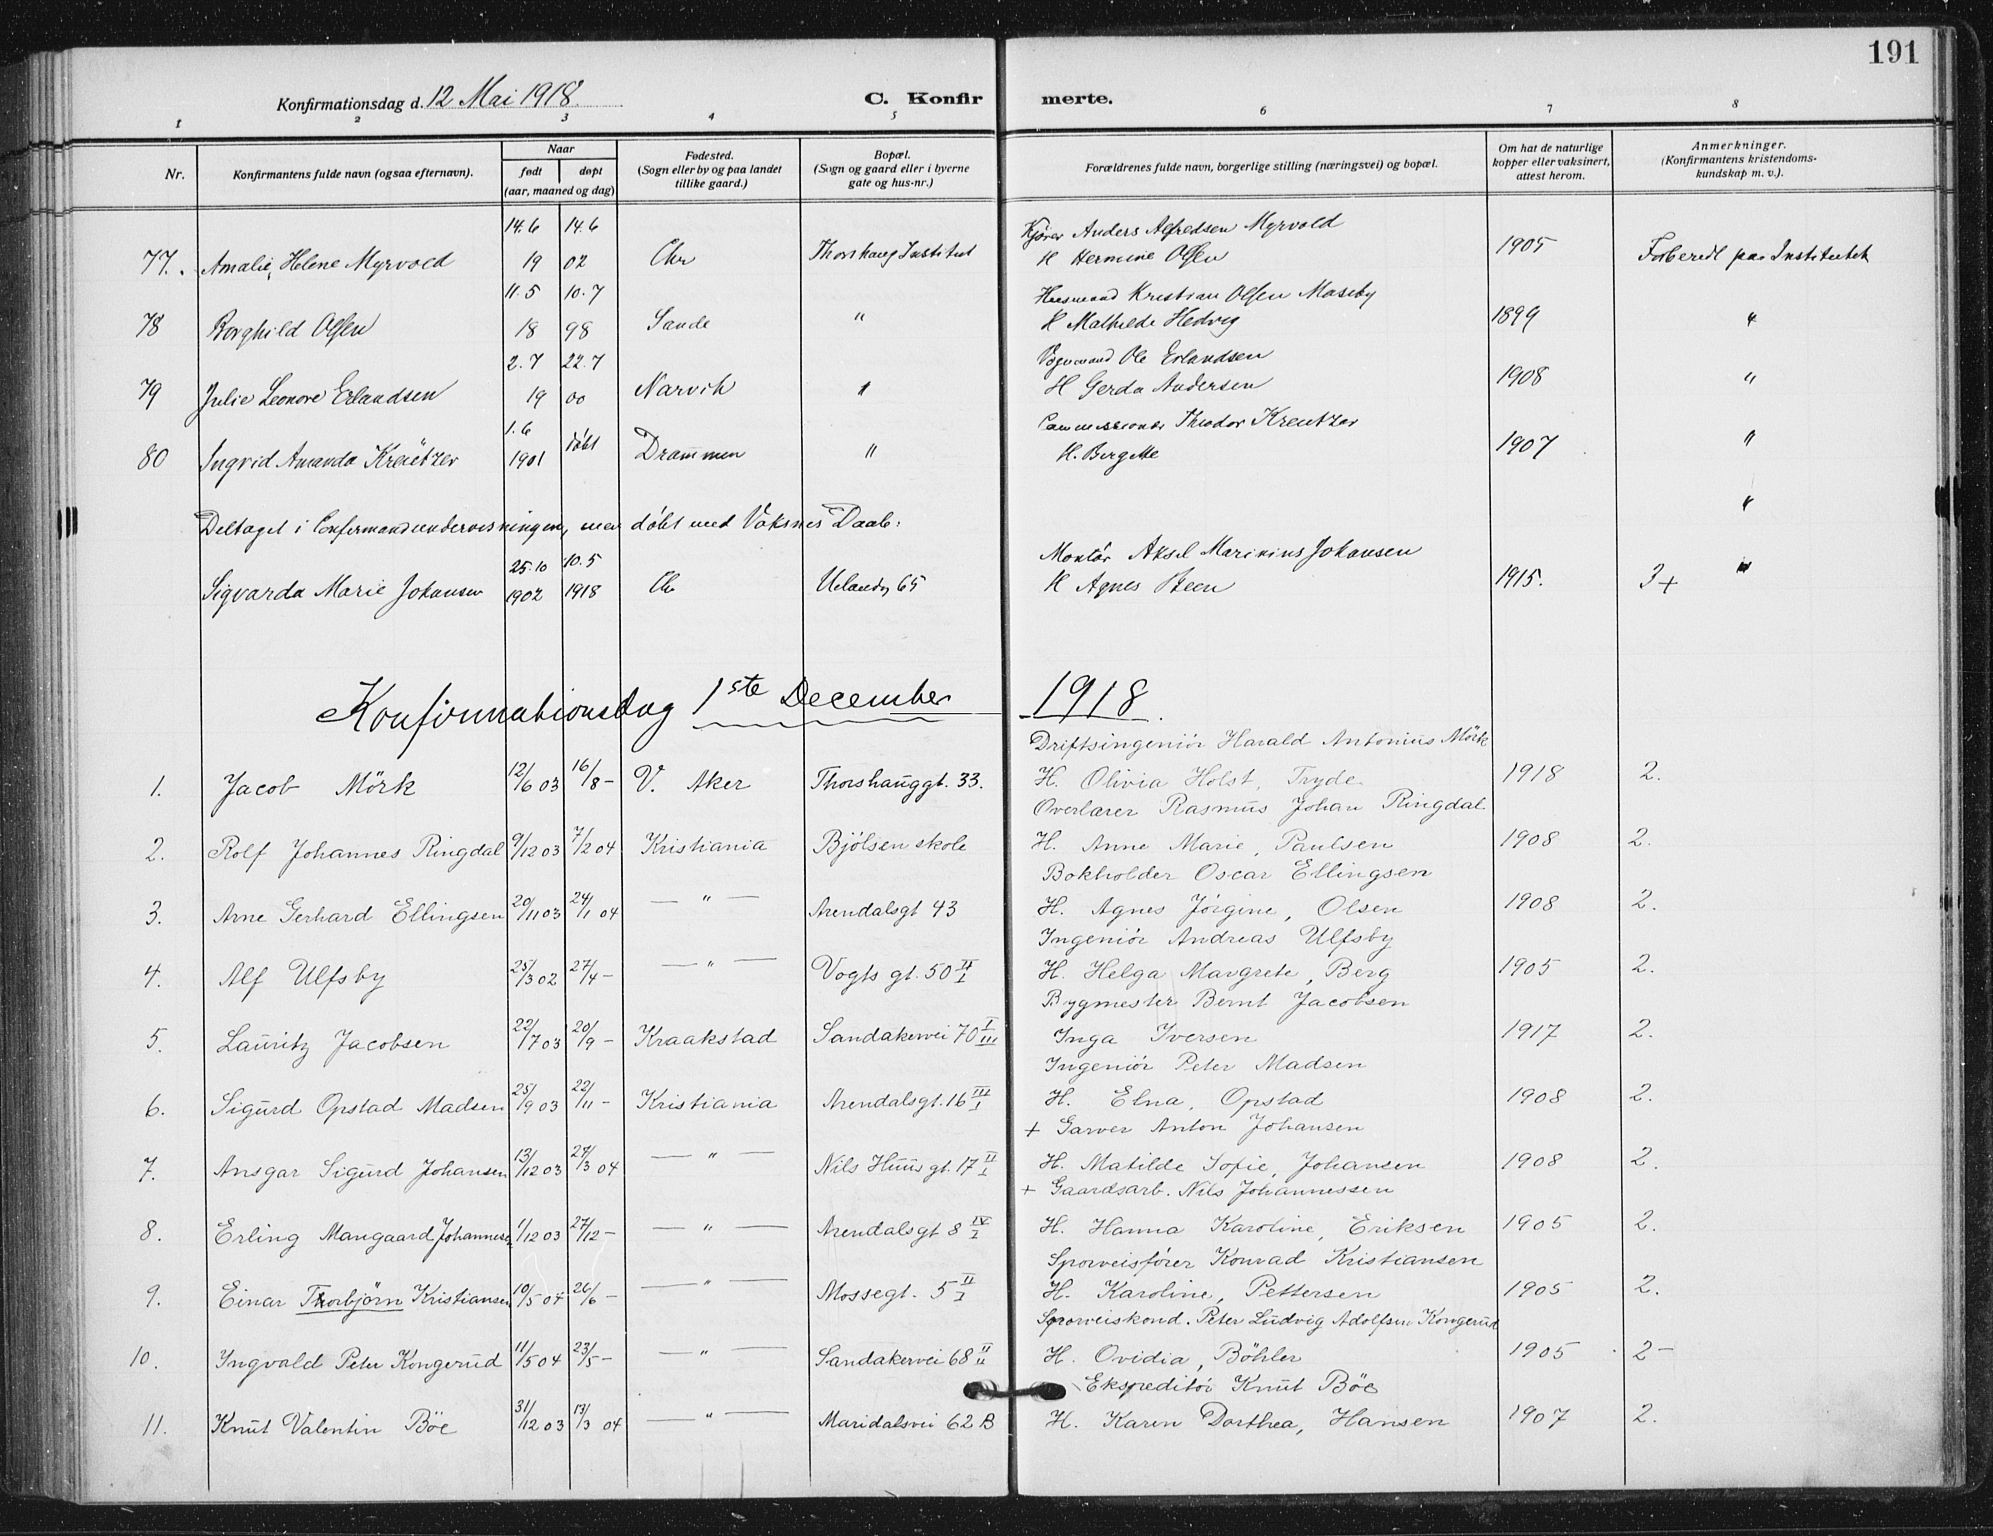 191
Konfirmationsdag d. 12 Mai 1918. C. Konfir merte.
1 2 3 4 5 6 7 8
Nr. Konfirmantens fulde navn (ogsaa efternavn). Naar født døpt (aar, maaned og dag) Fødested. (Sogn eller by og paa landet tillike gaard.) Bopæl. (Sogn og gaard eller i byerne gate og hus-nr.) Forældrenes fulde navn, borgerlige stilling (næringsvei) og bopæl. Om hat de naturlige kopper eller vaksinert, attest herom. Anmerkninger. (Konfirmantens kristendoms-kundskap m. v.).
14.6 14.6 Kjører Anders Alfredsen Myrvold
77. Amalie, Helene Myrvold 19 02 Chr Thorshaug Institut H Hermine Olsen 1905 Forberedt paa Institutet
11.5 10.7 Husmand Kristian Olsen Maseby
78 Borghild Olsen 18 98 Sande " H Mathilde Hedvig 1899 "
2.7 22.7 Vognmand Ole Erlandsen
79 Julie Leonore Erlandsen 19 00 Narvik " H Gerda Andersen 1908 "
1.6 Commissionær Theodor Kreutzer
80 Ingrid Amanda Kreützer 1901 døbt Drammen " H. Bergitte 1907 "
Deltaget i Confirmandundervisningen, men døbt med Voksnes Daab: "
25.10 10.5 Montør Aksel Marinius Johansen
Sigvarda Marie Johansen 1902 1918 Chr Uelandsg 65 H Agnes Steen 1915. 3+ "
Konfirmationsdag 1ste December 1918.
Driftsingeniør Harald Antonius Mörk
1. Jacob Mörk 12/6 03 16/8 - V. Aker Thorshauggt. 33. H. Olivia Holst, Tryde 1918 2.
Overlærer Rasmus Johan Ringdal
2. Rolf Johannes Ringdal 9/12 03 7/2 04 Kristiania Bjölsen skole H. Anne Marie, Paulsen 1908 2.
Bokholder Oscar Ellingsen
3. Arne Gerhard Ellingsen 20/11 03 24/1 04 — " — Arendalsgt 43 H. Agnes Jörgine, Olsen 1908 2.
Ingeniör Andreas Ulfsby
4. Alf Ulfsby 25/3 02 27/4 - — " — Vogts gt. 50 II/I H. Helga Margrete, Berg 1905 2.
Bygmester Bernt Jacobsen
5. Lauritz Jacobsen 22/7 03 20/9 - Kraakstad Sandakervei 70 I/III Inga Iversen 1917 2.
Ingeniör Peter Madsen
6. Sigurd Opstad Madsen 25/9 03 22/11 - Kristiania Arendalsgt. 16 III/I H. Elna, Opstad 1908 2.
+ Garver Anton Johansen
7. Ansgar Sigurd Johansen 13/12 03 27/3 04 — " — Nils Huus gt. 17 II/I H. Matilde Sofie, Johansen 1908 2.
+ Gaardsarb. Nils Johannessen
8. Erling Mangaard Johannesen 1/12 03 27/12 - — " — Arendalsgt 8 IV/I H. Hanna Karoline, Eriksen 1905 2.
Sporveisfører Konrad Kristiansen
9. Einar Thorbjörn Kristiansen 10/5 04 26/6 - — " — Mossegt. 5 II/I H. Karoline, Pettersen 1905 2.
Sporveiskond. Peter Ludvig Adolfsen Kongerud
10. Ingvald Peter Kongerud 11/5 04 23/5 - — " — Sandakervei 68 II/II H. Ovidia, Böhler 1905 2-
Ekspeditör Knut Böe
11. Knut Valentin Böe 31/12 03 13/3 04 — " — Maridalsvei 62 B H. Karen Dorthea, Hansen 1907 2.